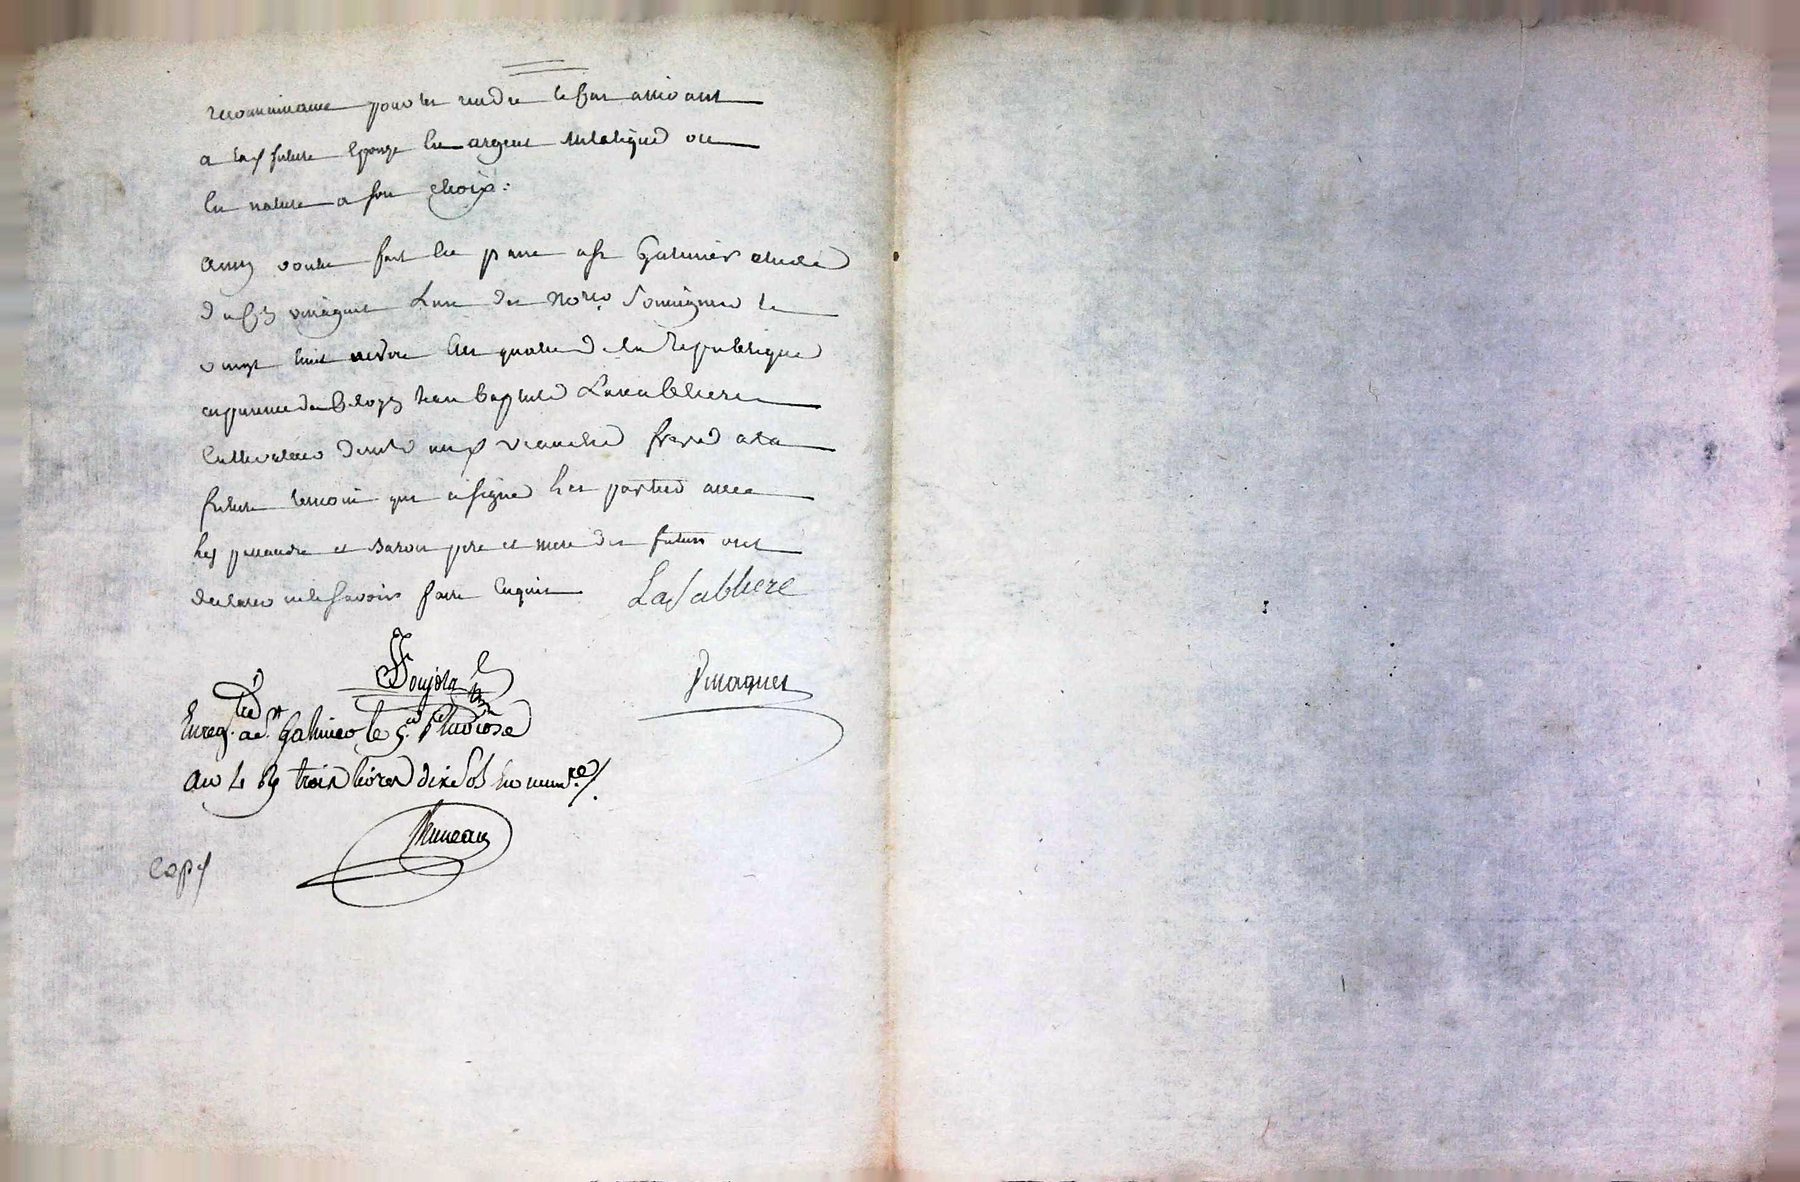 reconnaissance pour les rendre le cas arrivant
a lad future Epouze En argent Metalique ou
En nature a son choix:
Ainsy voulu fait lu passé a St Galmier etude
du Cn vinagnet L'un des Nores Soussignes le
vingt huit nivose an quatre de la Republique
en presence du Ctoyen Jean baptiste Lasabliere
Cultivateur frere a la
future temoin qui a signé Les parties avec
les et pere et mere des futurs ont
declaré ne le scavoir faire Enquis Lasabliere
Poujola
Vinagnet
Enreg. tré a St. Galmier le 5. Pluviose
an 4 Rç trois livres dix Sols En numre.
Bruneau
Copé